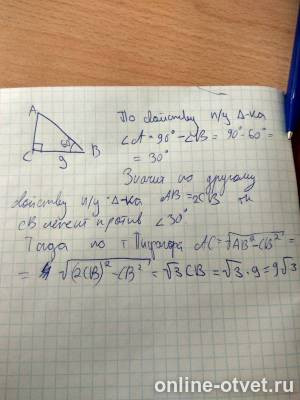 A
60°
C
9
B
По свойству п/у Δ-ка
∠A = 90° - ∠B = 90° - 60° =
= 30°
Значит по другому
свойству п/у Δ-ка AB = 2CB тк
CB лежит против ∠30°
Тогда по т. Пифагора AC = √AB² - CB² =
= √(2CB)² - CB² = √3 CB = √3 · 9 = 9√3
online-otvet.ru